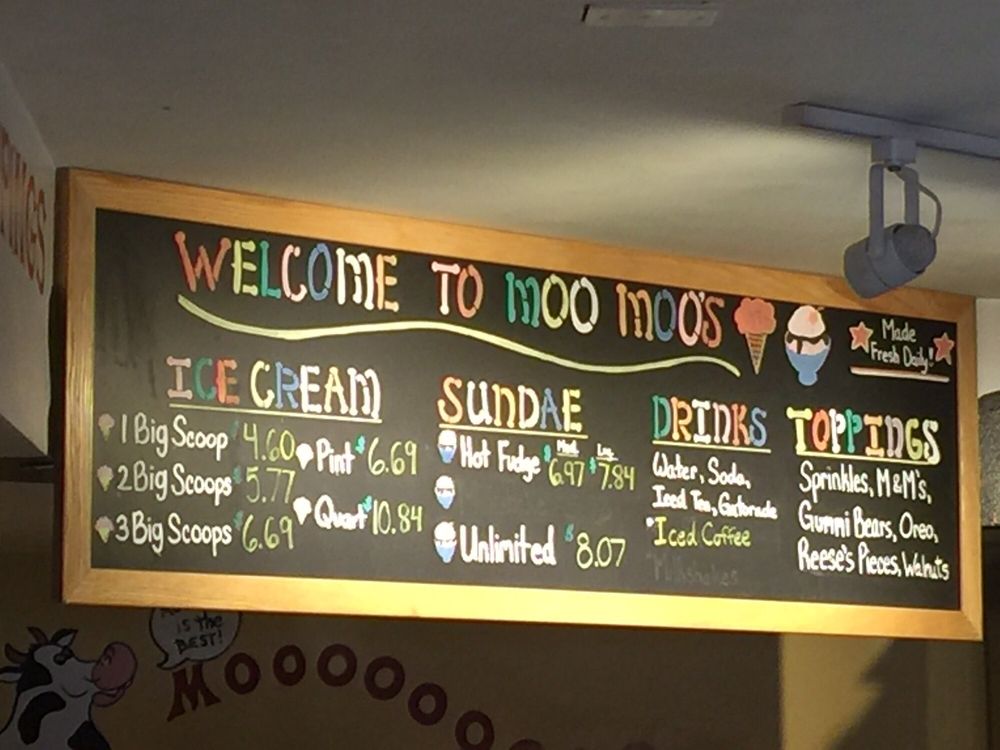 WELCOME TO MOO MOO'S
Made
Fresh Daily!
ICE CREAM
1 Big Scoop $4.60
2 Big Scoops $5.77
3 Big Scoops $6.69
Pint $6.69
Quart $10.84
SUNDAE
Med. Lrg.
Hot Fudge $6.97 $7.84
Unlimited $8.07
DRINKS
Water, Soda,
Iced Tea, Gatorade
*Iced Coffee
Milkshakes
TOPPINGS
Sprinkles, M&M's,
Gummi Bears, Oreo,
Reese's Pieces, Walnuts
IS THE
BEST!
MOOOOOOO